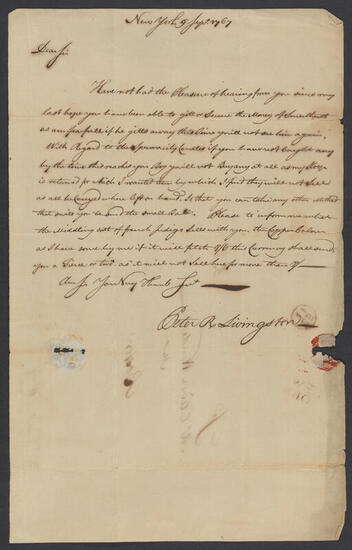 New York 9 Sept 1767
Dear Sir
Have not had the Pleasure of hearing from you since my
last hope you have been able to gett or Secure the Money of
as am fearfull if he getts away this time you'll not see him again,
With Regard to the Spermacity Candles if you have not bought any
by the time this reaches you Beg you'll not Buy any at all as my
is returned for which I wanted them by which I find they will not Sell
as all he Carryed where left on hand. So that you can take any other Method
that suits you to send the small Ball. Please to inform me what
the middling sort of french Indigo Sells with you, the Copper Colour
as I have some by me if it will fetch this Currency shall send
you a Tierce or two. as it will not sell here for more than 7/
Am Sir Your Very Humb Ser
Peter R Livingston